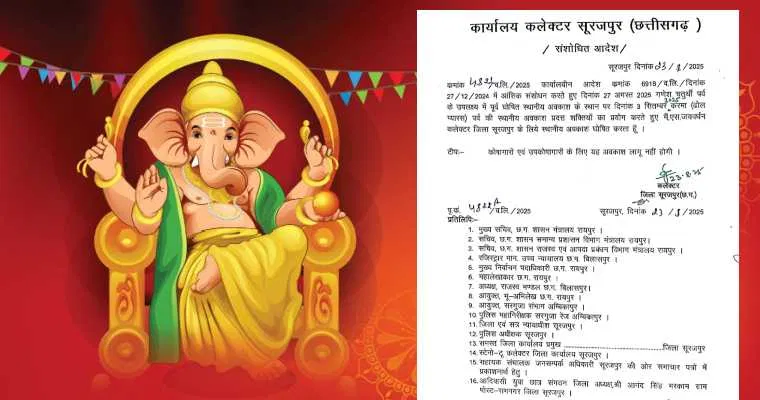 कार्यालय कलेक्टर सूरजपुर (छत्तीसगढ़ )
/ संशोधित आदेश/
सूरजपुर दिनांक 23/8/2025
कमांक /व.लि./2025 कार्यालयीन आदेश कमांक 6918/व.लि./दिनांक
27/12/2024 में आंशिक संशोधन करते हुए दिनांक 27 अगस्त 2025 गणेश चतुर्थी पर्व
के उपलक्ष्य में पूर्व घोषित स्थानीय अवकाश के स्थान पर दिनांक 3 सितम्बर 2025 करमा (ढोल
ग्यारस) पर्व की स्थानीय अवकाश प्रदत्त शक्तियों का प्रयोग करते हुए मैं,एस.जयवर्धन
कलेक्टर जिला सूरजपुर के लिये स्थानीय अवकाश घोषित करता हूँ ।
टीपः- कोषागारों एवं उपकोषागारों के लिए यह अवकाश लागू नहीं होगी ।
23.8.25
कलेक्टर
जिला सूरजपुर(छ.ग.)
पृ.कं. /व.लि./2025 सूरजपुर, दिनांक 23/8/2025
प्रतिलिपिः-
1. मुख्य सचिव, छ.ग. शासन मंत्रालय रायपुर ।
2. सचिव, छ.ग. शासन सामान्य प्रशासन विभाग मंत्रालय रायपुर।
3. सचिव, छ.ग. शासन राजस्व एवं आपदा प्रबंधन विभाग मंत्रालय रायपुर ।
4. रजिस्ट्रार मान. उच्च न्यायालय छ.ग. बिलासपुर ।
5. मुख्य निर्वाचन पदाधिकारी छ.ग. रायपुर ।
6. महालेखाकार छ.ग. रायपुर ।
7. अध्यक्ष, राजस्व मण्डल छ.ग. बिलासपुर।
8. आयुक्त, भू-अभिलेख छ.ग. रायपुर ।
9. आयुक्त, सरगुजा संभाग अम्बिकापुर ।
10. पुलिस महानिरीक्षक सरगुजा रेंज अम्बिकापुर ।
11. जिला एवं सत्र न्यायाधीश सूरजपुर ।
12. पुलिस अधीक्षक सूरजपुर ।
13. समस्त जिला कार्यालय प्रमुख ..............................जिला सूरजपुर
14. स्टेनो-टू कलेक्टर जिला कार्यालय सूरजपुर ।
15. सहायक संचालक जनसम्पर्क अधिकारी सूरजपुर की ओर समाचार पत्रों में
प्रकाशनार्थ हेतु ।
16. आदिवासी युवा छात्र संगठन जिला अध्यक्ष,श्री आनंद सिंह मरकाम ग्राम
पोस्ट-रामनगर जिला सूरजपुर ।